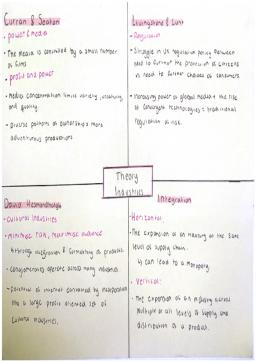 Curran & Seaton
• power & media
- The media is controlled by a small number of firms
• profit and power
- Media concentration limits variety, creativity and quality.
- Diverse patterns of ownership = more adventurous productions
Livingstone & Lunt
- Regulation
- Struggle in UK regulation policy between need to further the protection of citizens
vs need to further choices of consumers.
- Increasing power of global media + the rise
of convergent technologies = traditional
regulation at risk.
Theory
Industries
David Hesmondhalgh
- Cultural industries
- minimise risk, maximise audience
through integration & formatting of products.
- conglomerates operate across many industries.
- potential of internet contained by incorporation
into a large profit oriented set of
cultural industries.
Integration
- Horizontal:
The expansion of an industry at the same
level of supply chain.
↳ can lead to a monopoly.
• Vertical:
- The expansion of an industry across
multiple or all levels of supply and
distribution of a product.